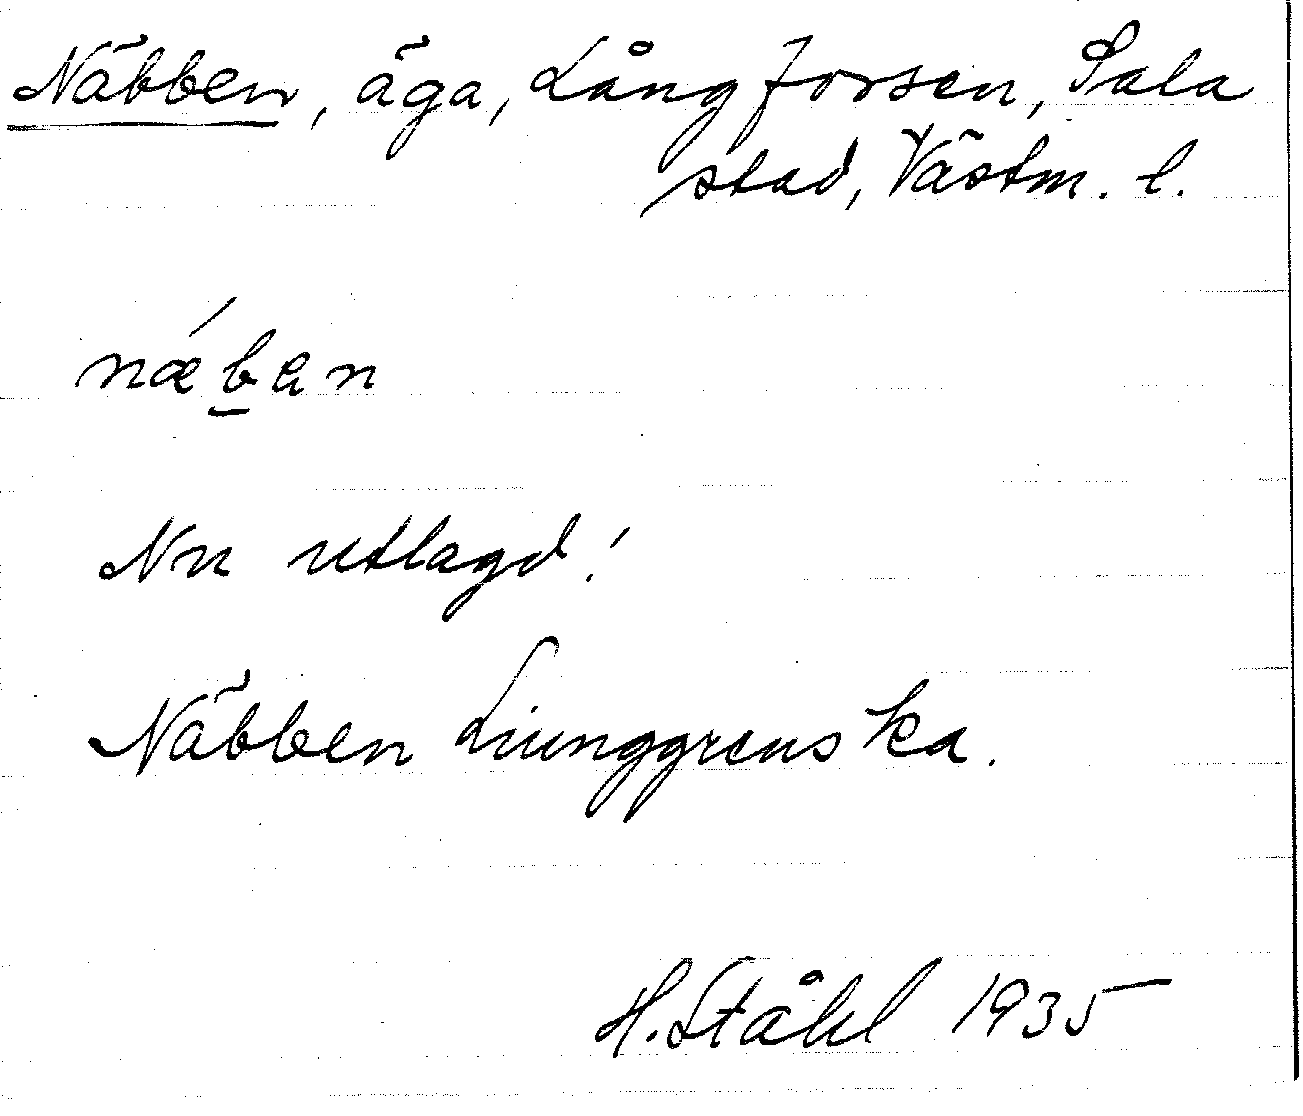 Näbben, äga, Långforsen, Sala
stad, Västm. l.
nǽb̲en
Nu utlagd!
Näbben Liunggrenska.
H. Ståhl 1935